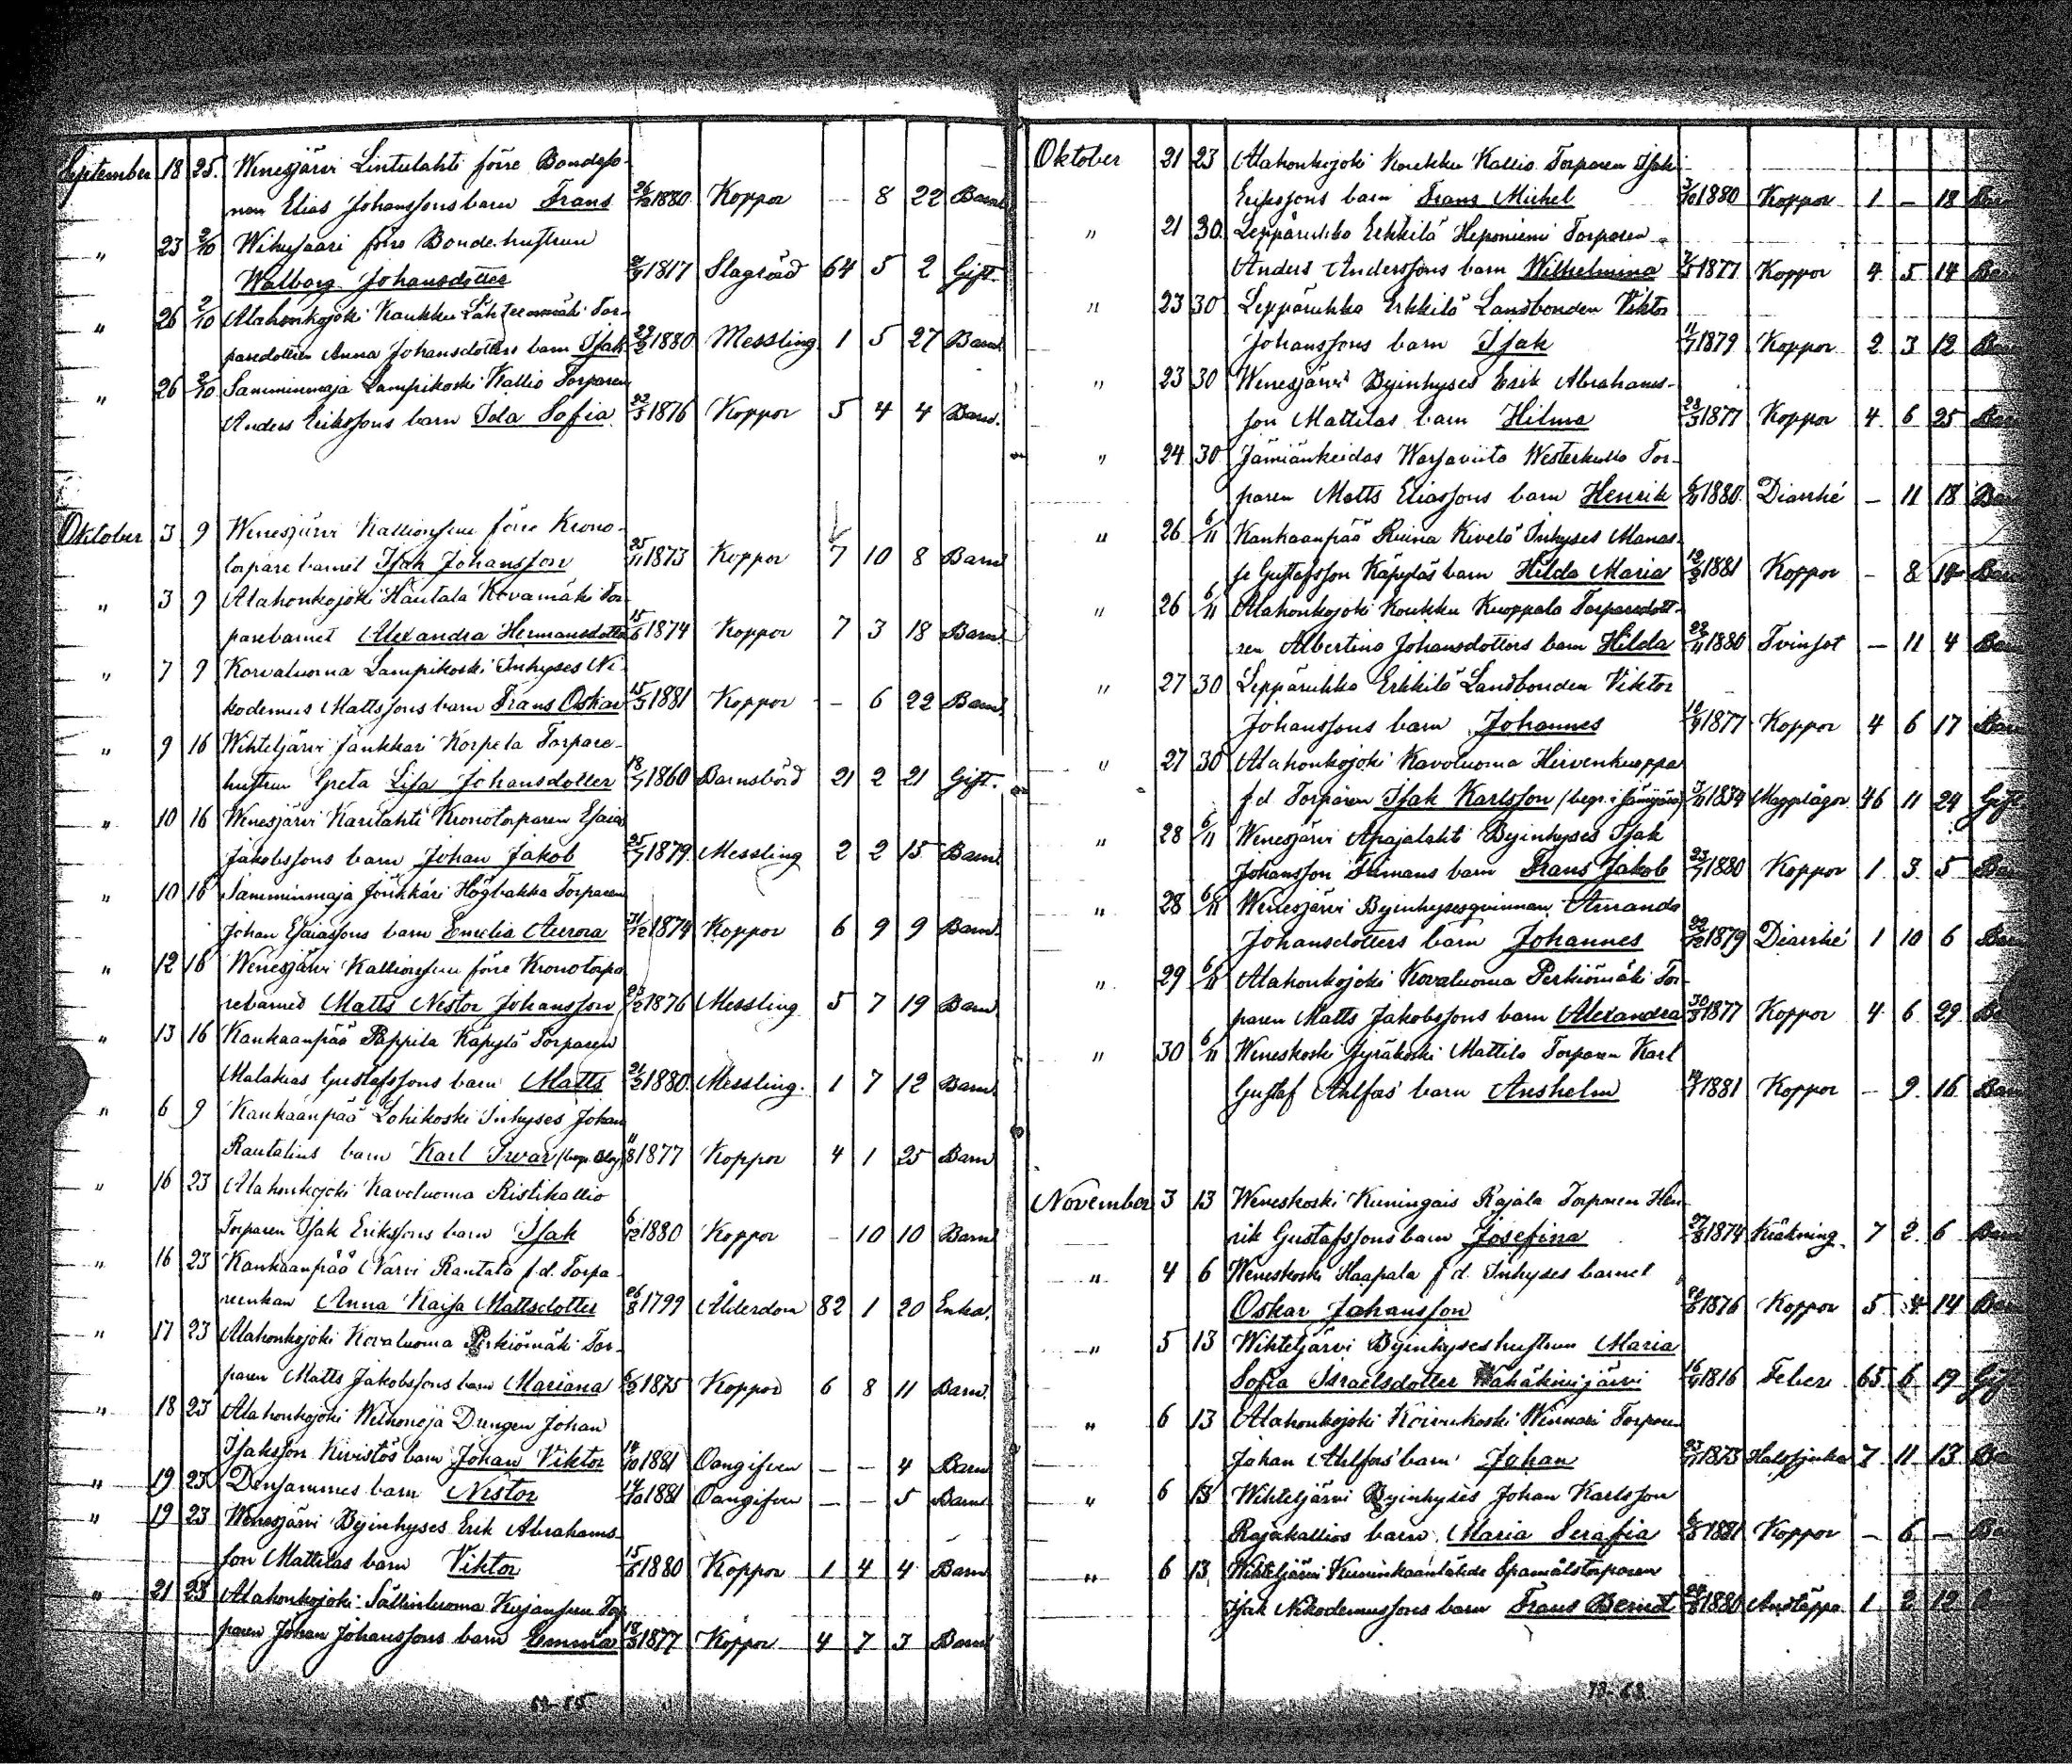 September 18 25. Wenesjärvi Lintulahti förre Bondeso-
nen Elias Johanssons barn Frans 26/12 1880 Koppor — 8 22 Barn
" 23 2/10 Wihusaari förre Bondehustrun
Walborg Johansdotter 1817 Slagröd 64 5 2 Gift.
" 26 2/10 Alahonkojoki Kaukku Lähteenmäki Tor-
paredottern Anna Johansdotters barn Isak 29/3 1880 Messling 1 5 27 Barn
" 26 2/10 Samminmaja Lampikoski Kallio Torparen
Anders Erikssons barn Ida Sofia 22/5 1876 Koppor 5 4 4 Barn.
Oktober 3 9 Wenesjärvi förre Krono-
torparebarnet Isak Johansson 25/11 1873 Koppor 7 10 8 Barn
" 3 9 Alahonkojoki Hautala Kovamäki Tor-
parebarnet Alexandra Hermansdotter 15/6 1874 Koppor 7 3 18 Barn.
" 7 9 Korvaluoma Lampikoski Inhyses Ni-
kodemus Mattssons barn Frans Oskar 15/3 1881 Koppor — 6 22 Barn.
" 9 16 Wihteljärvi Jänkkäri Korpela Torpare-
hustrun Greta Lisa Johansdotter 18/7 1860 Barnsbörd 21 2 21 Gift.
" 10 16 Wenesjärvi Karilahti Kronotorparen Esaias
Jakobssons barn Johan Jakob 25/7 1879 Messling 2 2 15 Barn
" 10 16 Samminmaja Jänkkäri Högbacka Torparen
Johan Esaiassons barn Emelia Aurora 31/12 1874 Koppor 6 9 9 Barn.
" 12 16 Wenesjärvi förre Kronotorpa-
rebarnet Matts Nestor Johansson 23/2 1876 Messling 5 7 19 Barn
" 13 16 Kankaanpää Pappila Käpylä Torparen
Malakias Gustafssons barn Matts 21/2 1880 Messling. 1 7 12 Barn
" 6 9 Kankaanpää Lohikoski Inhyses Johan
Rautalins barn Karl Iwar 11/8 1877 Koppor 4 1 25 Barn
" 16 23 Alahonkojoki Kavoluoma Ristikallio
Torparen Isak Erikssons barn Isak 6/12 1880 Koppor — 10 10 Barn
" 16 23 Kankaanpää Narvi Rautala f.d. Torpa-
reenkan Anna Kaisa Mattsdotter 26/8 1799 Ålderdom 82 1 20 Enka.
" 17 23 Alahonkojoki Kovaluoma Perkiömäki Tor-
paren Matts Jakobssons barn Mariana 1875 Koppor 6 8 11 Barn.
" 18 23 Alahonkojoki Drengen Johan
Isaksson Kivistös barn Johan Viktor 14/10 1881 Oangifven — — 4 Barn
" 19 23 Densammes barn Nestor 14/10 1881 Oangifven — — 5 Barn
" 19 23 Wenesjärvi Byinhyses Erik Abrahams-
son Mattilas barn Viktor 15/6 1880 Koppor 1 4 4 Barn
" 21 23 Alahonkojoki Sällinluoma Kujansuu Tor-
paren Johan Johanssons barn Emma 18/3 1877 Koppor 4 7 3 Barn
Oktober 21 23 Alahonkojoki Koukku Kallio Torparen Isak
Erikssons barn Frans Michel 3/10 1880 Koppor 1 — 18
" 21 30 Leppäruhka Erkkilä Heponiemi Torparen
Anders Anderssons barn Wilhelmina 7/5 1877 Koppor 4 5 14
" 23 30 Leppäruhka Erkkilä Landbonden Viktor
Johanssons barn Isak 11/7 1879 Koppor 2 3 12
" 23 30 Wenesjärvi Byinhyses Erik Abrahams-
son Mattilas barn Hilma 28/3 1877 Koppor 4 6 25
" 24 30 Jämiänkeidas Warsaviita Westerkulla Tor-
paren Matts Eliassons barn Henrik 6/11 1880 Diarrhé — 11 18
" 26 6/11 Kankaanpää Ruina Kivelä Inhyses Manas-
se Gustafsson Käpyläs barn Hilda Maria 12/2 1881 Koppor — 8 14
" 26 6/11 Alahonkojoki Koukku Kuoppala Torparedott-
ren Albertina Johansdotters barn Hilda 22/11 1880 Tvinsot — 11 4
" 27 30 Leppäruhka Erkkilä Landbonden Viktor
Johanssons barn Johannes 10/4 1877 Koppor 4 6 17
" 27 30 Alahonkojoki Kavoluoma Hirvenkuoppa
f d Torparen Isak Karlsson (begr. i Jämijärvi) 3/11 1834 Magplågor 46 11 24 Gift
" 28 6/11 Wenesjärvi Apajalahti Byinhyses Isak
Johansson Timans barn Frans Jakob 23/7 1880 Koppor 1 3 5
" 28 6/11 Wenesjärvi Byinhysesqvinnan Amanda
Johansdotters barn Johannes 22/12 1879 Diarrhé 1 10 6
" 29 6/11 Alahonkojoki Kovaluoma Perkiömäki Tor-
paren Matts Jakobssons barn Alexandra 30/3 1877 Koppor 4 6 29
" 30 6/11 Weneskoski Jyräkoski Mattila Torparen Karl
Gustaf Ahlfors barn Anshelm 14/1 1881 Koppor — 9 16 Barn
November 3 13 Weneskoski Kuningais Rajala Torparen Hen-
rik Gustafssons barn Josefina 27/8 1874 Kräkning 7 2 6 Barn
" 4 6 Weneskoski Haapala f d. Inhyses barnet
Oskar Johansson 20/6 1876 Koppor 5 4 14
" 5 13 Wihteljärvi Byinhyseshustrun Maria
Sofia Israelsdotter Wähäkivijärvi 16/4 1816 Feber 65 6 19
" 6 13 Alahonkojoki Koivukoski Winnari Torparen
Johan Ahlfors barn Johan 23/11 1873 7 11 13
" 6 13 Wihteljärvi Byinhyses Johan Karlsson
Rajakallios barn Maria Serafia 6/5 1881 Koppor — 6 —
" 6 13 Wihteljärvi Spanmålstorparen
Isak Nikodemussons barn Frans Berndt 24/8 1880 Andtäppa 1 2 12